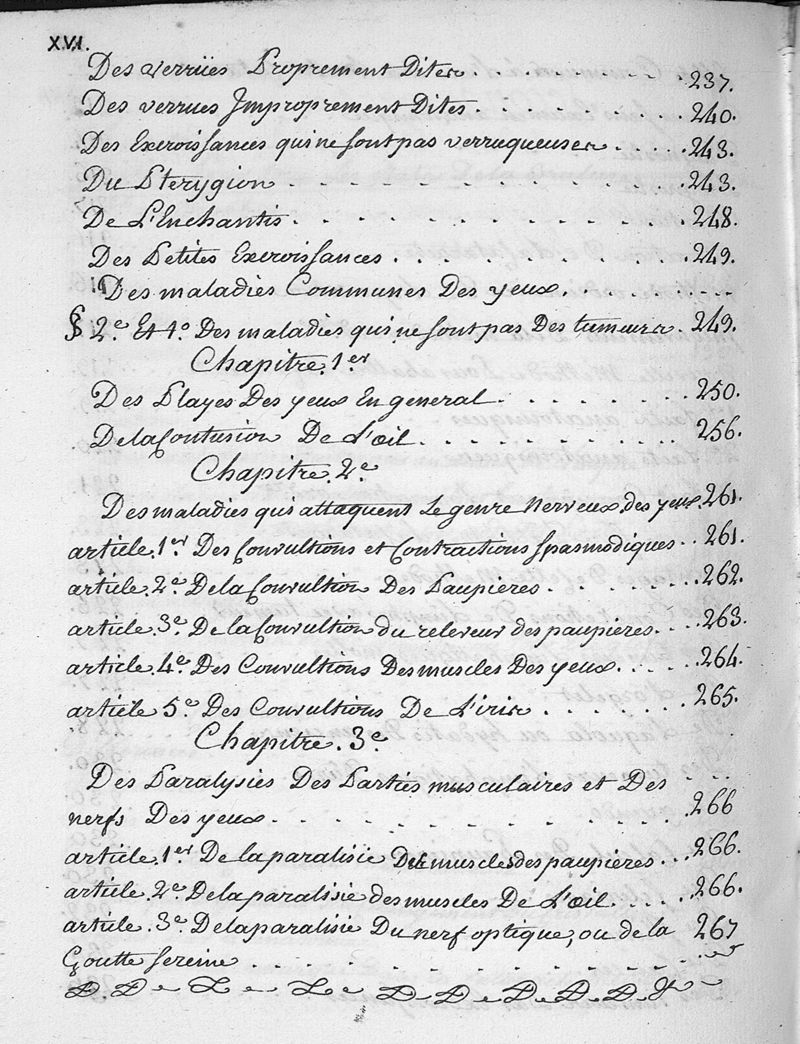 XVI.
Des verrües Proprement Dites. . . . . . . . . 237.
Des verrues Improprement Dites. . . . . . . . 240.
Des Excroissances qui ne sont pas verruqueuses . . . . 243.
Du Pterygion . . . . . . . . . . . . 243.
De L'Enchantis. . . . . . . . . . . . 248.
Des Petites Excroissances . . . . . . . . . 249.
Des maladies Communes Des yeux. . . . . . . .
§ 2e Et 4o Des maladies qui ne sont pas Des tumeurs . 249.
Chapitre. 1er
Des Playes Des yeux En general . . . . . . . 250.
De la Contusion De L'œil . . . . . . . . . 256.
Chapitre. 2e
Des maladies qui attaquent Le genre Nerveux des yeux. 261.
article. 1er Des Convultions et Contractions Spasmodiques . . 261.
article. 2e De la Convultion Des Paupières. . . . . . . 262.
article. 3e De la Convultion du releveur des paupières. . . 263.
article. 4e Des Convultions Des muscles Des yeux. . . . . 264.
article 5e Des Convultions De L'iris. . . . . . . . 265.
Chapitre. 3e
Des Paralysies Des Parties musculaires et Des . . .
nerfs Des yeux. . . . . . . . . . . . 266
article. 1er De la paralisie Des muscles des paupières . . . 266.
article. 2e De la paralisie des muscles De L'œil. . . . . 266.
article. 3e De la paralisie Du nerf optique, ou de la 267
Goutte sereine . . . . . . . . . . . .